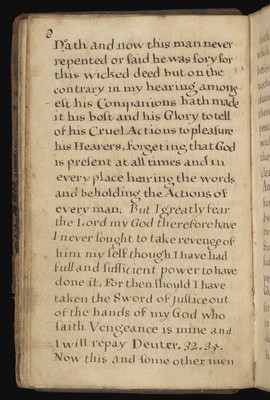 8
Death and now this man never
repented or said he was sory for
this wicked deed but on the
contrary in my hearing among
est his Companions hath made
it his bost and his Glory to tell
of his Cruel Actions to pleasure
his Hearers, forgeting, that God
is present at all times and in
every place hearing the words
and beholding the Actions of
every man. But I greatly fear
the Lord my God therefore have
I never sought to take revenge of
him my self though I have had
full and sufficient power to have
done it, For then should I have
taken the Sword of justice out
of the hands of my God who
saith Vengeance is mine and
I will repay Deuter. 32. 35.
Now this and some other men